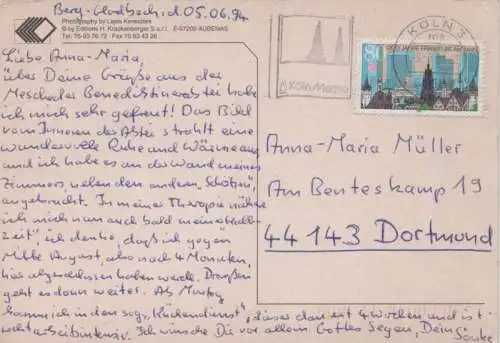 Berg.-Gladbach, d. 05.06.94
Photography by Lajos Keresztes
© by Editions H. Krackenberger S.a.r.l. · F-07200 AUBENAS
Tel. 75 93 76 72 · Fax 75 93 43 26
Liebe Anna-Maria,
über Deine Grüße aus der
Mescheder Benediktinerabtei habe
ich mich sehr gefreut! Das Bild
vom Inneren der Abtei strahlt eine
wundervolle Ruhe und Wärme aus
und ich habe es an der Wand meines
Zimmers, neben den anderen „Schätzen",
angebracht. In meiner Therapie nähere
ich mich nun auch bald meiner „Halb-
zeit", ich denke, daß ich gegen
Mitte August, also nach 4 Monaten,
hier abgeschlossen haben werde. Draußen
geht es dann weiter. Ab Montag
komm ich in den sog. „Küchendienst", dieser dauert 4 Wochen und ist
recht arbeitsintensiv. Ich wünsche Dir vor allem Gottes Segen, Dein
KÖLN 3
80
1200 JAHRE FRANKFURT AM MAIN
KölnMesse
Anna-Maria Müller
Am Benteskamp 19
44143 Dortmund